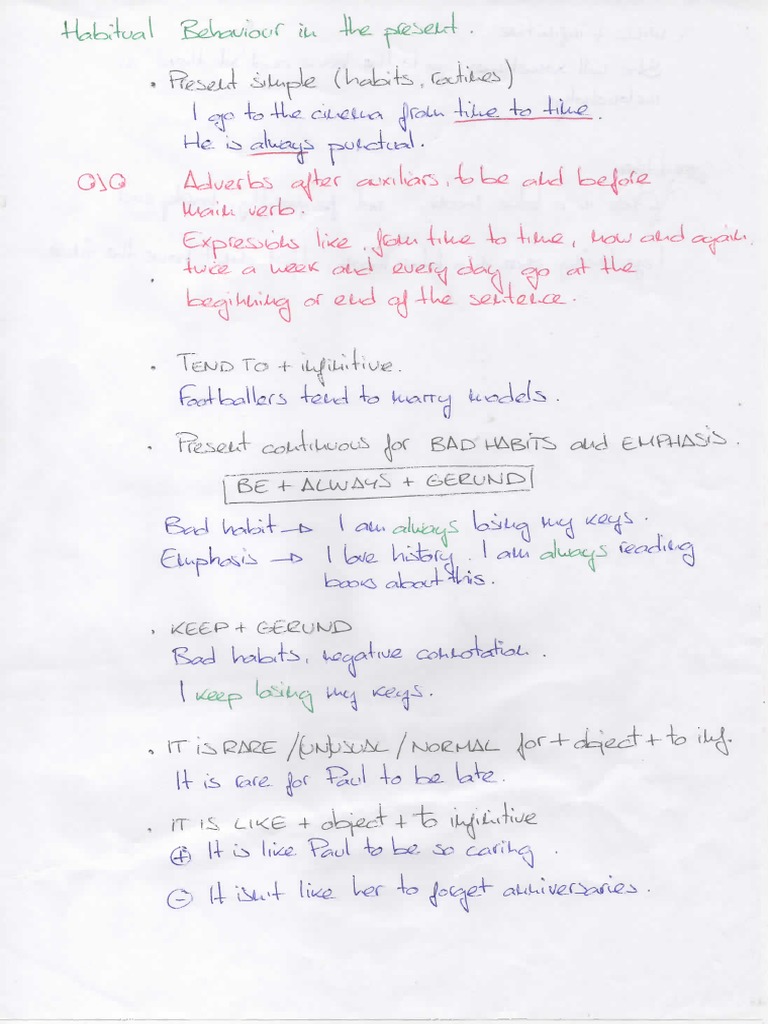 Habitual Behaviour in the present.
• Present simple (habits, routines)
I go to the cinema from time to time.
He is always punctual.
OJO Adverbs after auxiliars, to be and before
main verb.
Expressions like, from time to time, now and again,
twice a week and every day go at the
beginning or end of the sentence.
• TEND TO + infinitive.
Footballers tend to marry models.
• Present continuous for BAD HABITS and EMPHASIS.
BE + ALWAYS + GERUND
Bad habit → I am always losing my keys.
Emphasis → I love history. I am always reading
books about this.
• KEEP + GERUND
Bad habits, negative connotation.
I keep losing my keys.
• IT IS RARE /(UN)USUAL / NORMAL for + object + to inf.
It is rare for Paul to be late.
• IT IS LIKE + object + to infinitive
⊕ It is like Paul to be so caring.
⊖ It isn't like her to forget anniversaries.